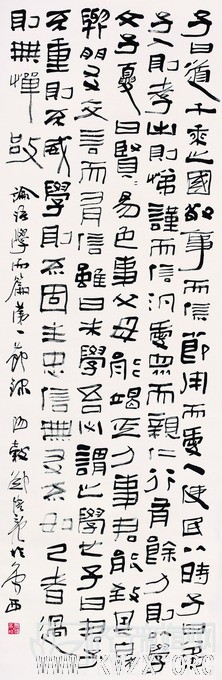 子曰道千乘之國敬事而信節用而愛人使民以時子曰弟
子入則孝出則悌謹而信汎愛眾而親仁行有餘力則以學
文子夏曰賢易色事父母能竭其力事君能致其身
與朋友交言而有信雖曰未學吾必謂之學也子曰君子
不重則不威學則不固主忠信無友不如己者過
則無憚改 論語學而篇第一節錄